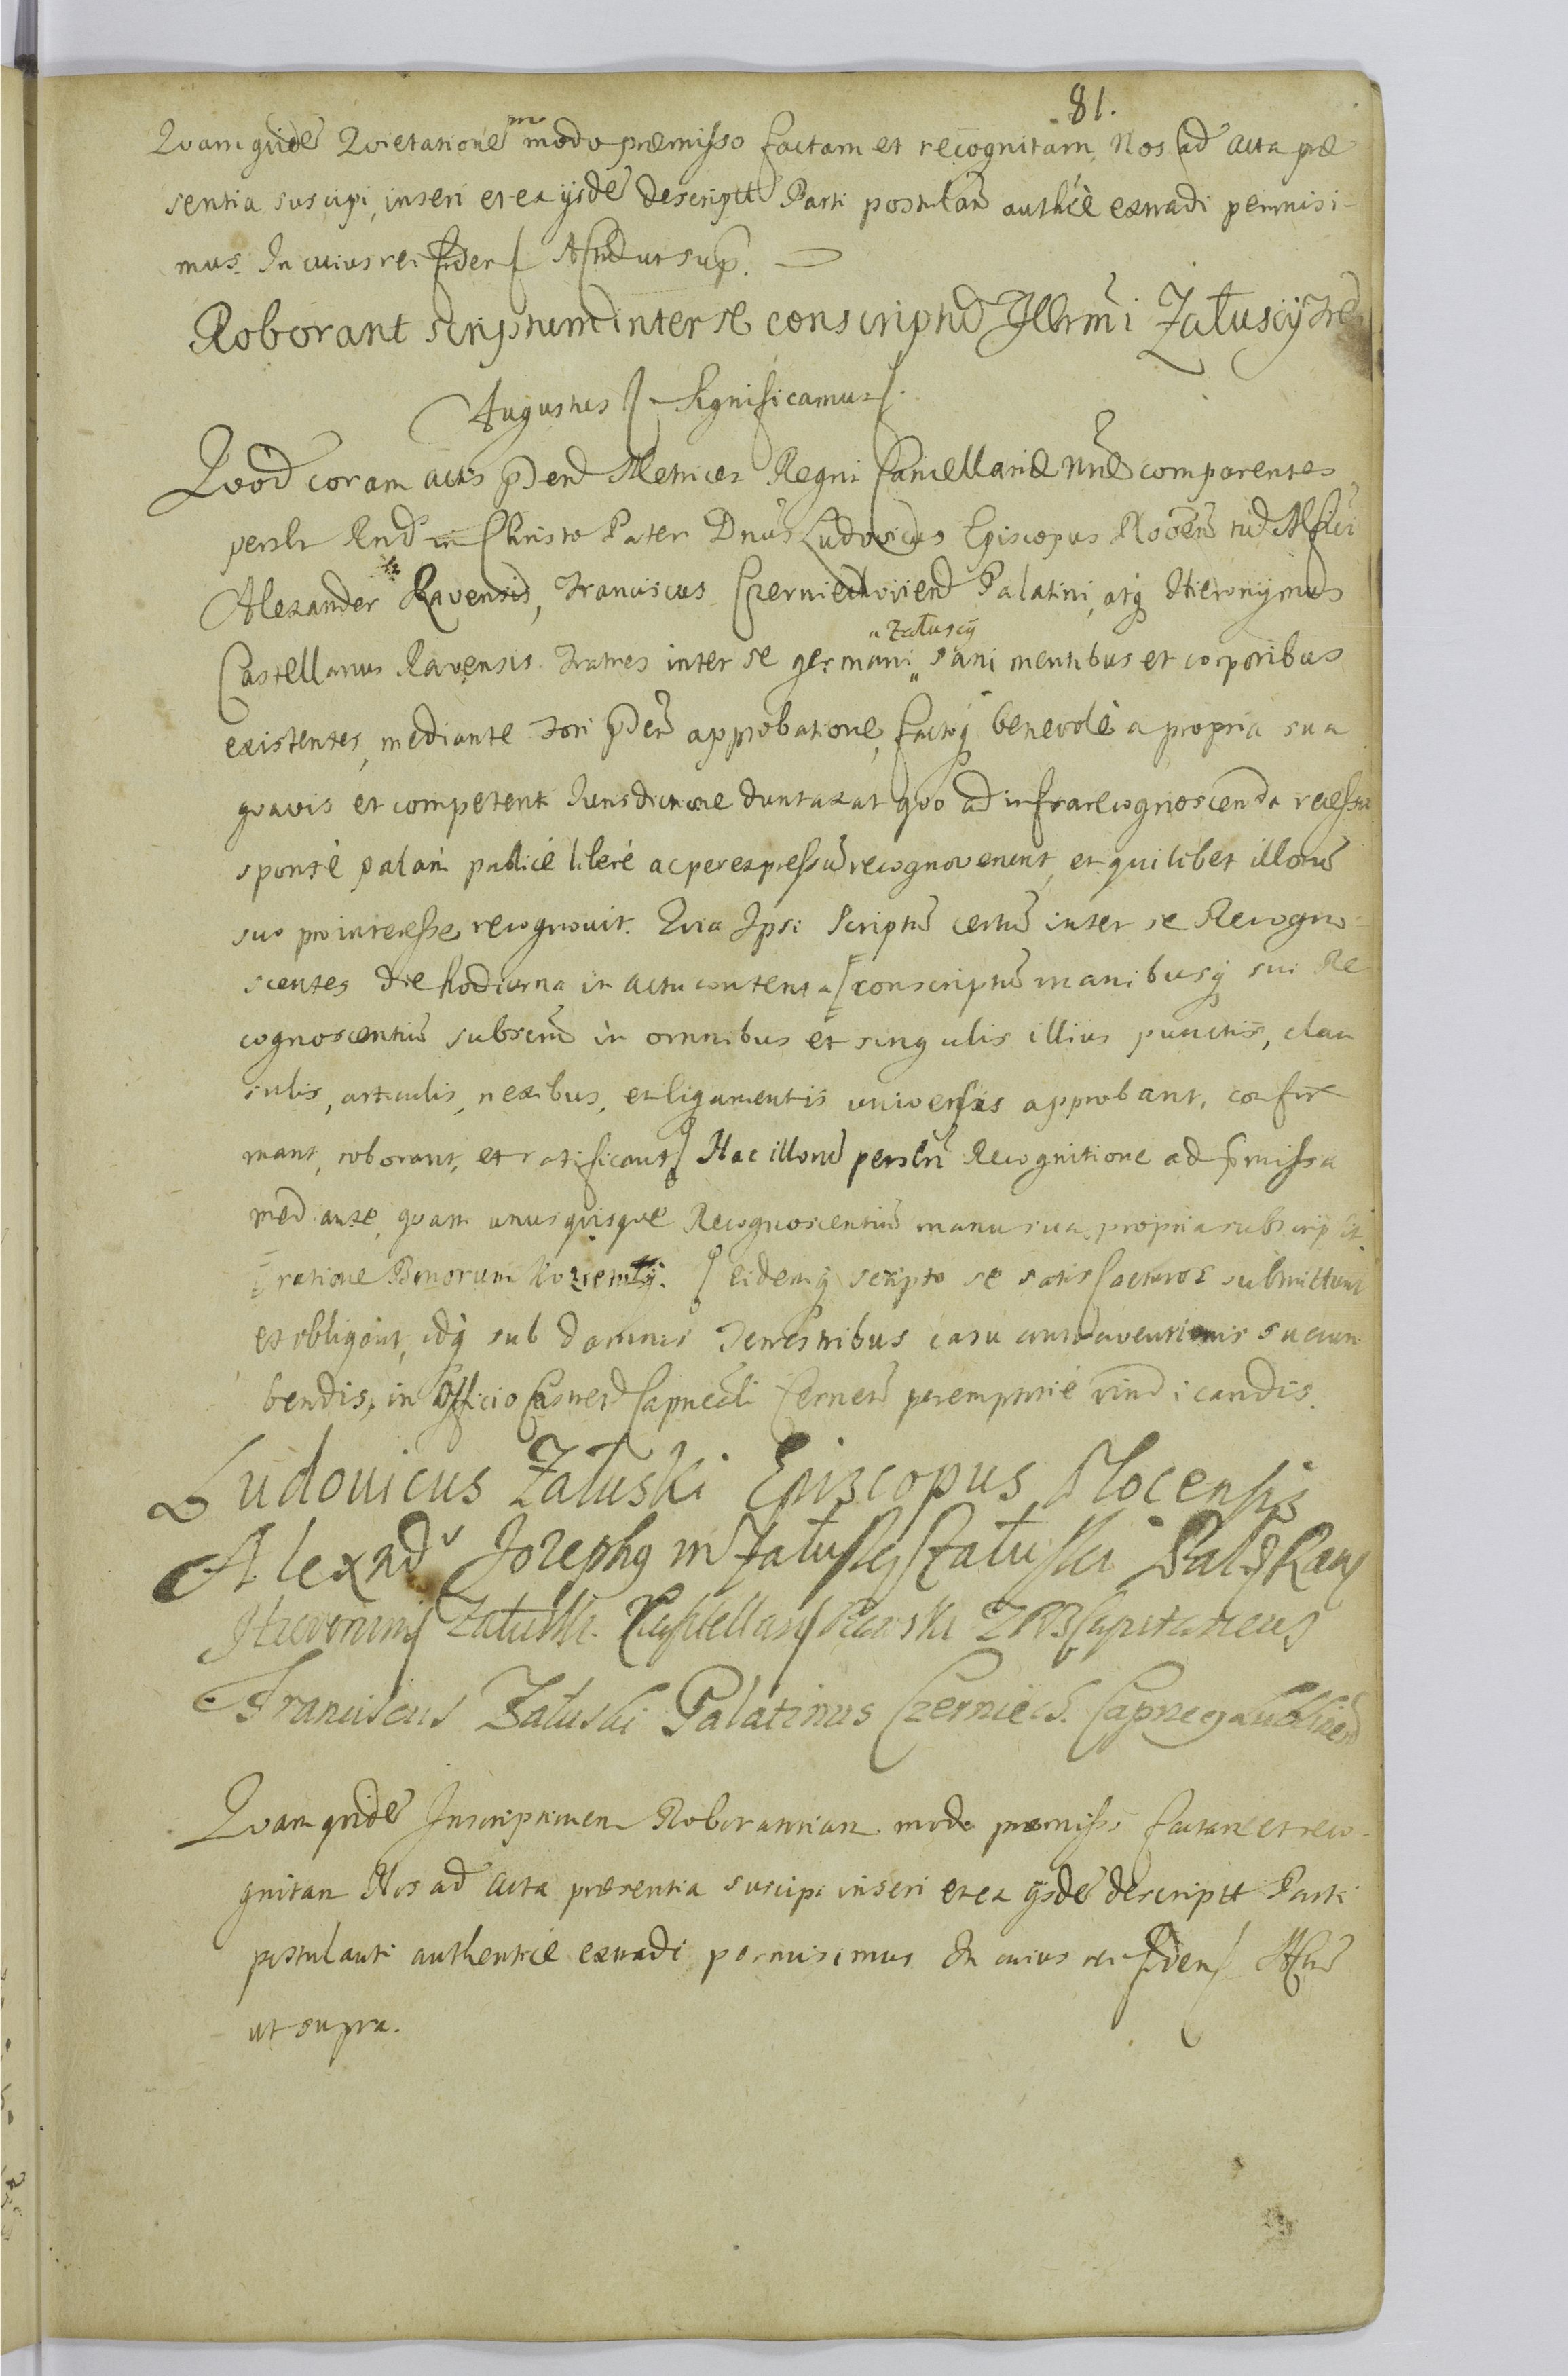 81.
Quam quidē Quietationē modo præmisso factam et recognitam, Nos ad Acta præ
sentia suscipi, inseri et ex ijsdē descriptt Parti postulan authēē extradi permisi-
mus. In cuius rei fidem Actū ut sup.
Roborant scriptum inter se conscriptū Illrmi Załuscij
Augustus Significamus
Quod coram actis Metrices Regni Cancellariæ comparentes
persltr Rnd in Christo Pater Dnus Ludovicus Episcopus Plocen tud Mfici
Alexander Ravensis, Franciscus Czerniechovien Palatini, atq Hieronymus
Castellanus Ravensis Fratres inter se germani " Załuscij " sani mentibus et corporibus
existentes, mediante fori approbatione, factoq benevolè a propria sua
quavis et competenti Iurisdictione duntaxat quo ad infrarecognoscenda recessu
spontè palam publicè liberè ac per expressū recognoverunt, et quilibet illorū
suo pro interesse recognovit. Quia Ipsi Scriptū certū inter se Recogno-
scentes die hodierna in actu contenta [conscriptū manibusq sui Re
cognoscentiū subscriū in omnibus et singulis illius punctis, clau
sulis, articulis, nexibus, et ligamentis universis approbant, confir
mant, roborant, et ratificant] Hac illorū persln Recognitione ad pmissa
mediante, quam unusquisque Recognoscentiū manu sua propria subscripsit
ratione Bonorum eidemq scripto se satisfacturos submittunt
et obligant, idq sub damnis terrestribus casu contraventionis succum
bendis, in Officio Castren Capnēali Cernen peremptorie vindicandis.
Ludovicus Załuski Episcopus Plocensis
Alexadr Jozeph9 in Załuskj Załuski Pal. Raw
Hieronim Załuski Kasztellan Rawski ZRB Capitaneus
Franciscus Załuski Palatinus Czerniech.
Quam quidē Inscriptionem Roboratoriam modo præmisso factam et reco-
gnitam Nos ad Acta præsentia suscipi inseri et ex ijsdē descriptt Parti
postulanti authenticè extradi permisimus In cuius rei fidem Actū
ut supra.